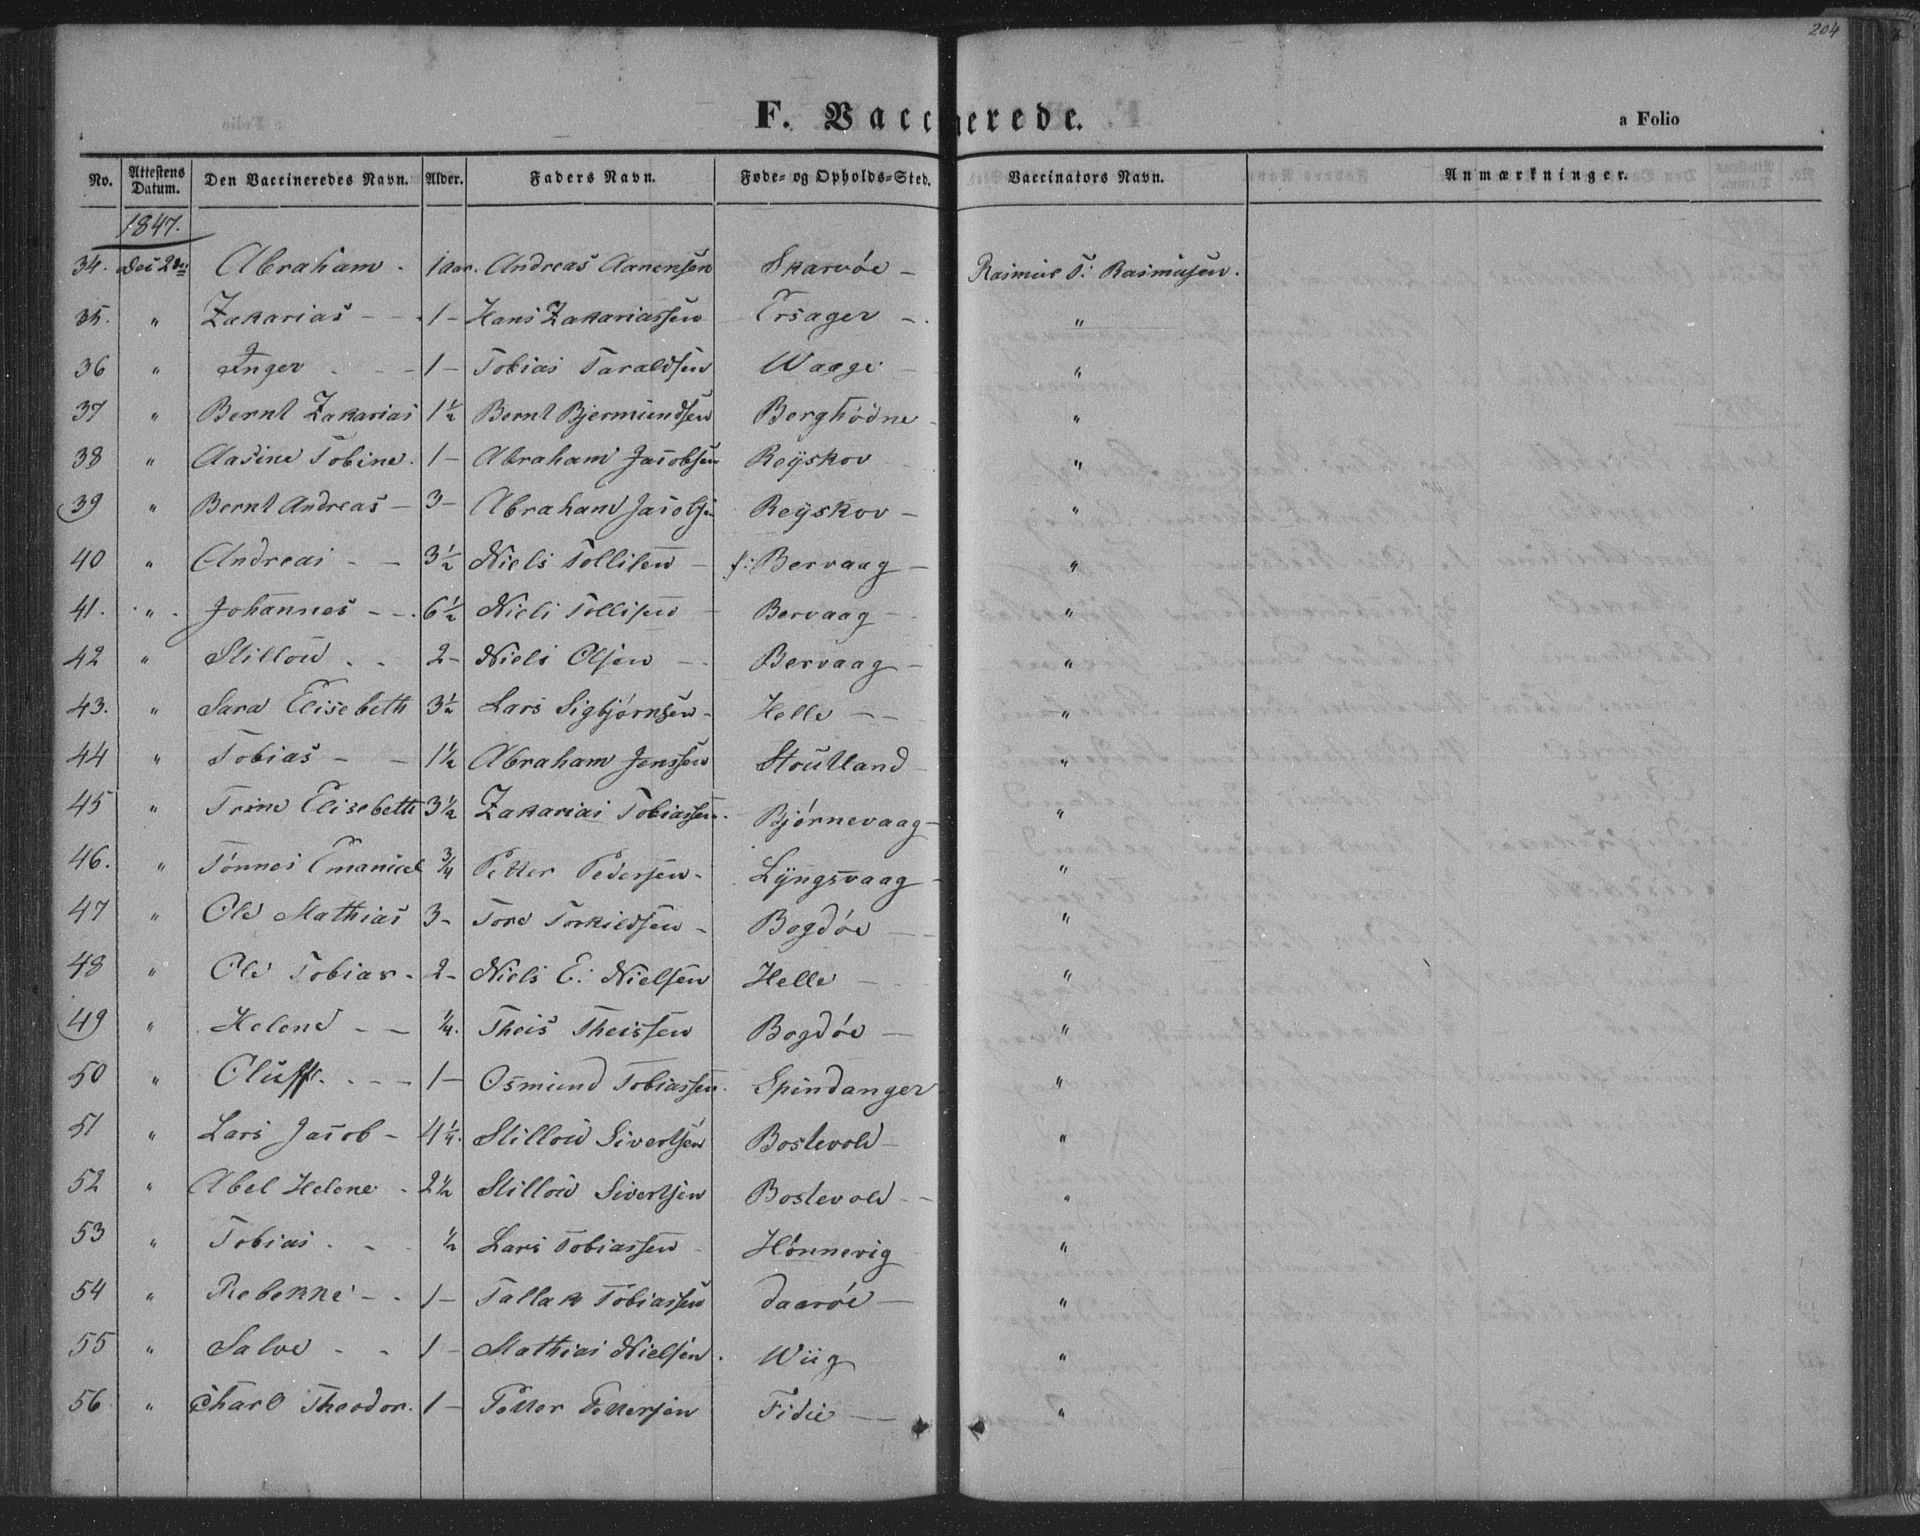 204
F. Vaccinerede.
a Folio
No. Attestens Datum. Den Vaccineredes Navn. Alder. Faders Navn. Føde- og Opholds-Sted. Vaccinators Navn. Anmærkninger.
1847.
34. Abraham - 1 aar. Andreas Aanensen Skarvøe - Rasmus T: Rasmusen.
35. " Zakarias - - 1 - Hans Zakariassen Orsager - "
36 " Inger - - 1 - Tobias Taraldsen Waage - "
37 " Bernt Zakarias 1½ Bernt Bjermundsen Berghødne - "
38 " Aasine Tobine. 1 - Abraham Jacobsen Reÿskov "
39 " Bernt Andreas - 3 - Abraham Jacobsen Reÿskov - "
40 " Andreas - - 3½ Niels Tollisen - f: Bervaag - "
41. " Johannes - - 6½ Niels Tollisen - Bervaag - "
42 " Stillou - - 2 - Niels Olsen - Bervaag - "
43. " Sara Elisebeth 3½ Lars Sigbjørnsen - Helle - - "
44 " Tobias - - 1½ Abraham Jenssen Stoutland - "
45 " Trine Elisebeth 3½ Zakarias Tobiassen - Bjørnevaag - "
46. " Tønnes Emanuel ¾ Petter Pedersen - Lÿngsvaag - "
47 " Ole Mathias 3 - Tore Torkildsen - Bogdøe - "
48 " Ole Tobias - 2 - Niels E: Nielsen Helle - "
49 " Helene - - ¼. Theis Theissen Bogdøe - "
50 " Oluff. - - 1 - Osmund Tobiassen. Spindanger "
51 " Lars Jacob - 4¼. Stillou Sivertsen Bostevold - "
52 " Abel Helene - 2½ Stillou Sivertsen Bostevold - "
53 " Tobias - - ½ Lars Tobiassen - Hønnevig "
54 " Rebekke - - 1 - Tallak Tobiassen Daarøe - "
55 " Salve - - 1 - Mathias Nielsen. Wiig "
56 " Charl Theodor. 1 - Petter Pettersen Fidie - - "